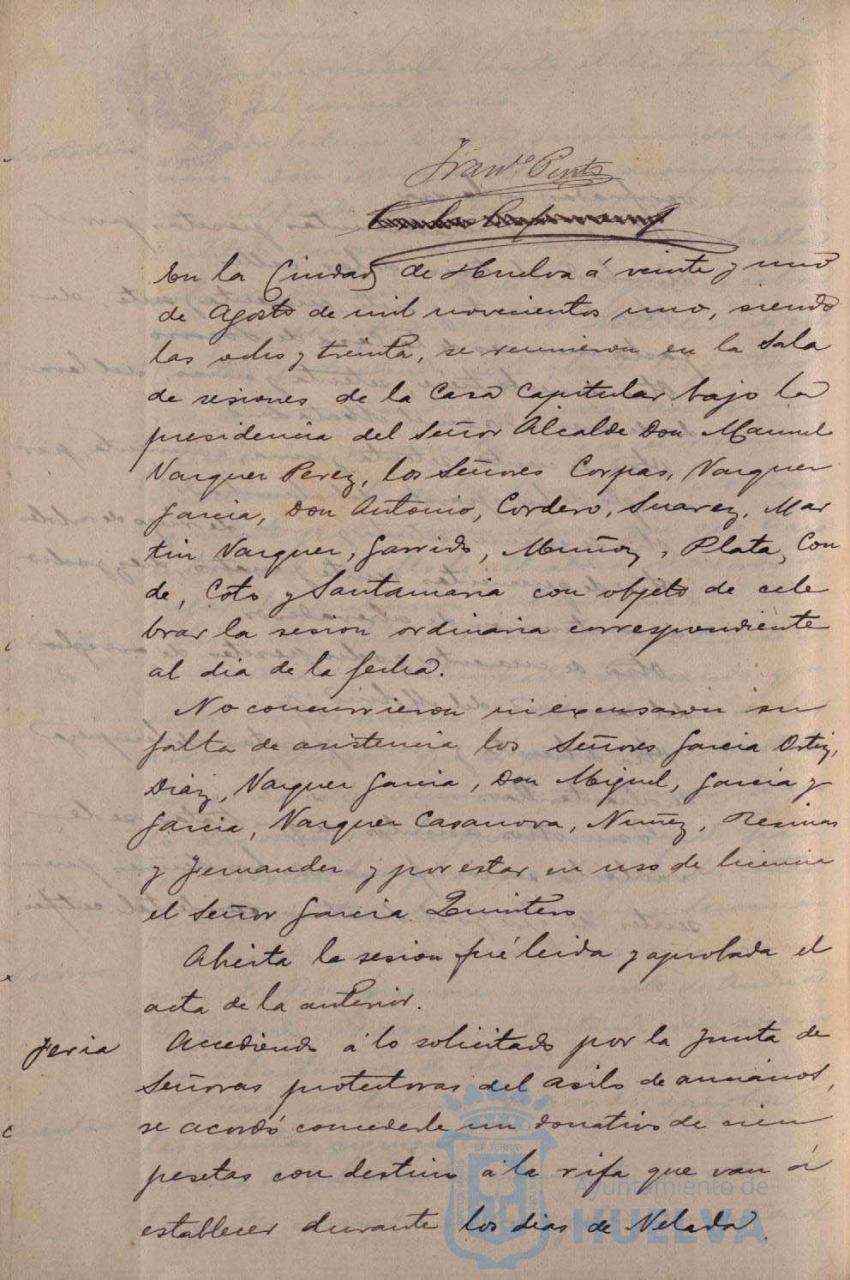 Franco Pinto
En la Ciudad de Huelva á veinte y uno
de Agosto de mil novecientos uno, siendo
las ocho y treinta, se reunieron en la Sala
de sesiones de la Casa Capitular bajo la
presidencia del Señor Alcalde Don Manuel
Vazquez Perez, los Señores Corpas, Vazquez
Garcia, Don Antonio, Cordero, Suarez, Mar
tin Vazquez, Garrido, Muñoz, Plata, Con
de, Coto y Santamaria con objeto de cele
brar la sesion ordinaria correspondiente
al dia de la fecha.
No concurrieron ni excusaron su
falta de asistencia los Señores Garcia Ortiz,
Diaz, Vazquez Garcia, Don Miguel, Garcia y
Garcia, Vazquez Casanova, Nuñez, Resinas
y Fernandez y por estar en uso de licencia
el Señor Garcia Quintero
Abierta la sesion fué leida y aprobada el
acta de la anterior.
Feria Accediendo á lo solicitado por la Junta de
Señoras protectoras del asilo de ancianos,
se acordó concederle un donativo de cien
pesetas con destino á la rifa que van á
establecer durante los dias de Velada.
Ayuntamiento de
HUELVA